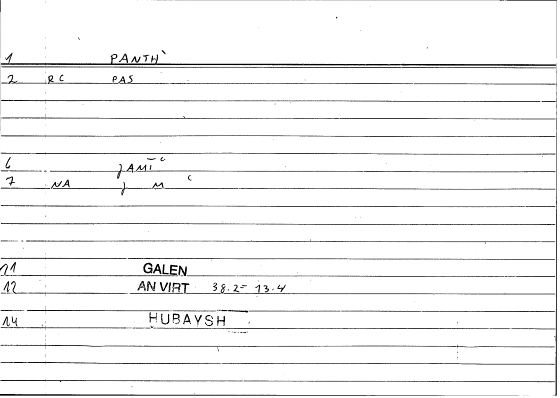 1 PANTH`
2 RC PAS
6 ǧAMĪʿ
7 NA ǧ M ʿ
11 GALEN
12 AN VIRT 38.2= 13.4
14 HUBAYSH